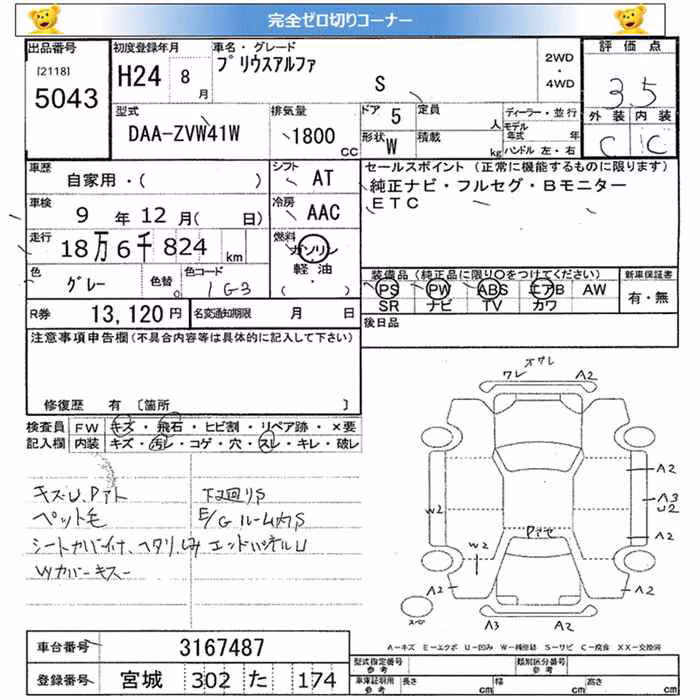 完全ゼロ切りコーナー
出品番号
[2118]
5043
初度登録年月
H24 8月
車名・グレード
プリウスアルファ
S
2WD
・
4WD
評価点
3.5
外装 内装
C C
型式
DAA-ZVW41W
排気量
1800
CC
ドア 5
定員
人
形状 W
積載
kg
ディーラー・並行
モデル年式 年
ハンドル 左・右
車歴
自家用・( )
シフト
AT
車検
9 年 12 月( 日)
冷房
AAC
走行
18万6千824 km
燃料
ガソリン
軽油
( ・ )
色
グレー
色替
色コード
1G3
セールスポイント (正常に機能するものに限ります)
純正ナビ・フルセグ・Bモニター
ETC
装備品(純正品に限り○をつけてください)
PS PW ABS エアB AW
SR ナビ TV カワ
新車保証書
有・無
R券 13,120円
名変通知期限 月 日
後日品
注意事項申告欄(不具合内容等は具体的に記入して下さい)
修復歴 有 〔箇所 〕
検査員
記入欄
FW キズ・飛石・ヒビ割・リペア跡・×要
内装 キズ・汚レ・コゲ・穴・スレ・キレ・破レ
キズU.Pアト
下廻りS
ペット毛
E/Gルーム内S
エンドパネルU
ワレ
A2
A2
A3
U2
A2
W2
W2
A2
A2
A3
A2
A-キズ E-エクボ U-凹み W-補修跡 S-サビ C-腐食 XX-交換済
車台番号 3167487
登録番号 宮城 302 た 174
型式指定番号
参考
類別区分番号
参考
車庫証明用
参考
長さ cm
幅 cm
高さ cm